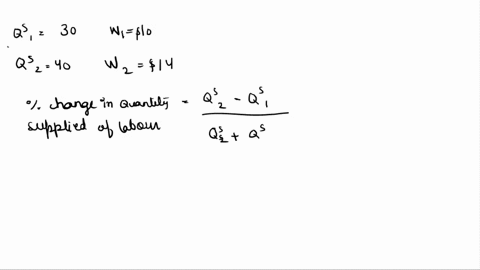 Qˢ₁ = 30 W₁ = $10
Qˢ₂ = 40 W₂ = $14
% change in Quantity = Qˢ₂ - Qˢ₁
supplied of labour Qˢ₂ + Qˢ